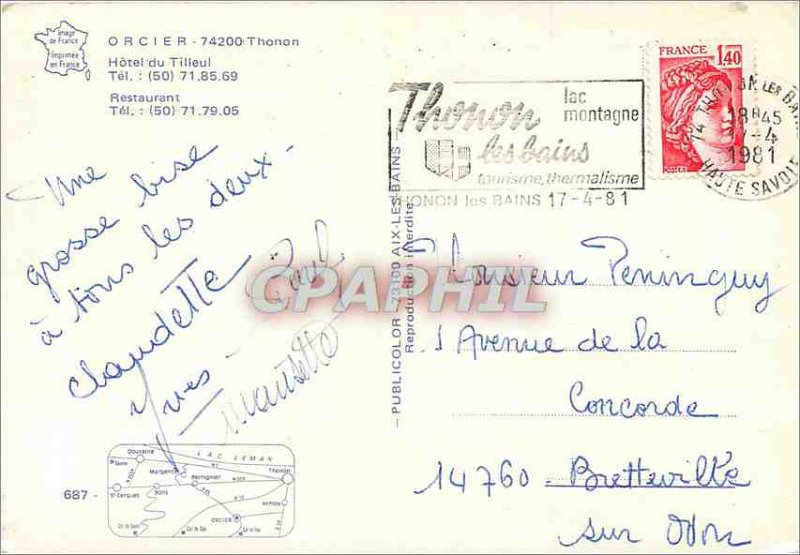 Image
de France
Imprimée
en France
ORCIER - 74200 Thonon
Hôtel du Tilleul
Tél. : (50) 71.85.69
Restaurant
Tél. : (50) 71.79.05
Une
grosse bise
à tous les deux -
Claudette Paul
Yves - Mauricette
LAC LEMAN
Douvaine
Thonon
Perrignier
N 5
ORCIER
687 -
PUBLICOLOR - 73100 AIX-LES-BAINS -
Reproduction interdite
Thonon
les bains
lac
montagne
tourisme, thermalisme
THONON les BAINS 17-4-81
FRANCE
1,40
POSTES
74 THONON LES BAINS
18H45
17-4
1981
HAUTE SAVOIE
Monsieur Peninguy
1 Avenue de la
Concorde
14760 Bretteville
sur Odon
CPAPHIL